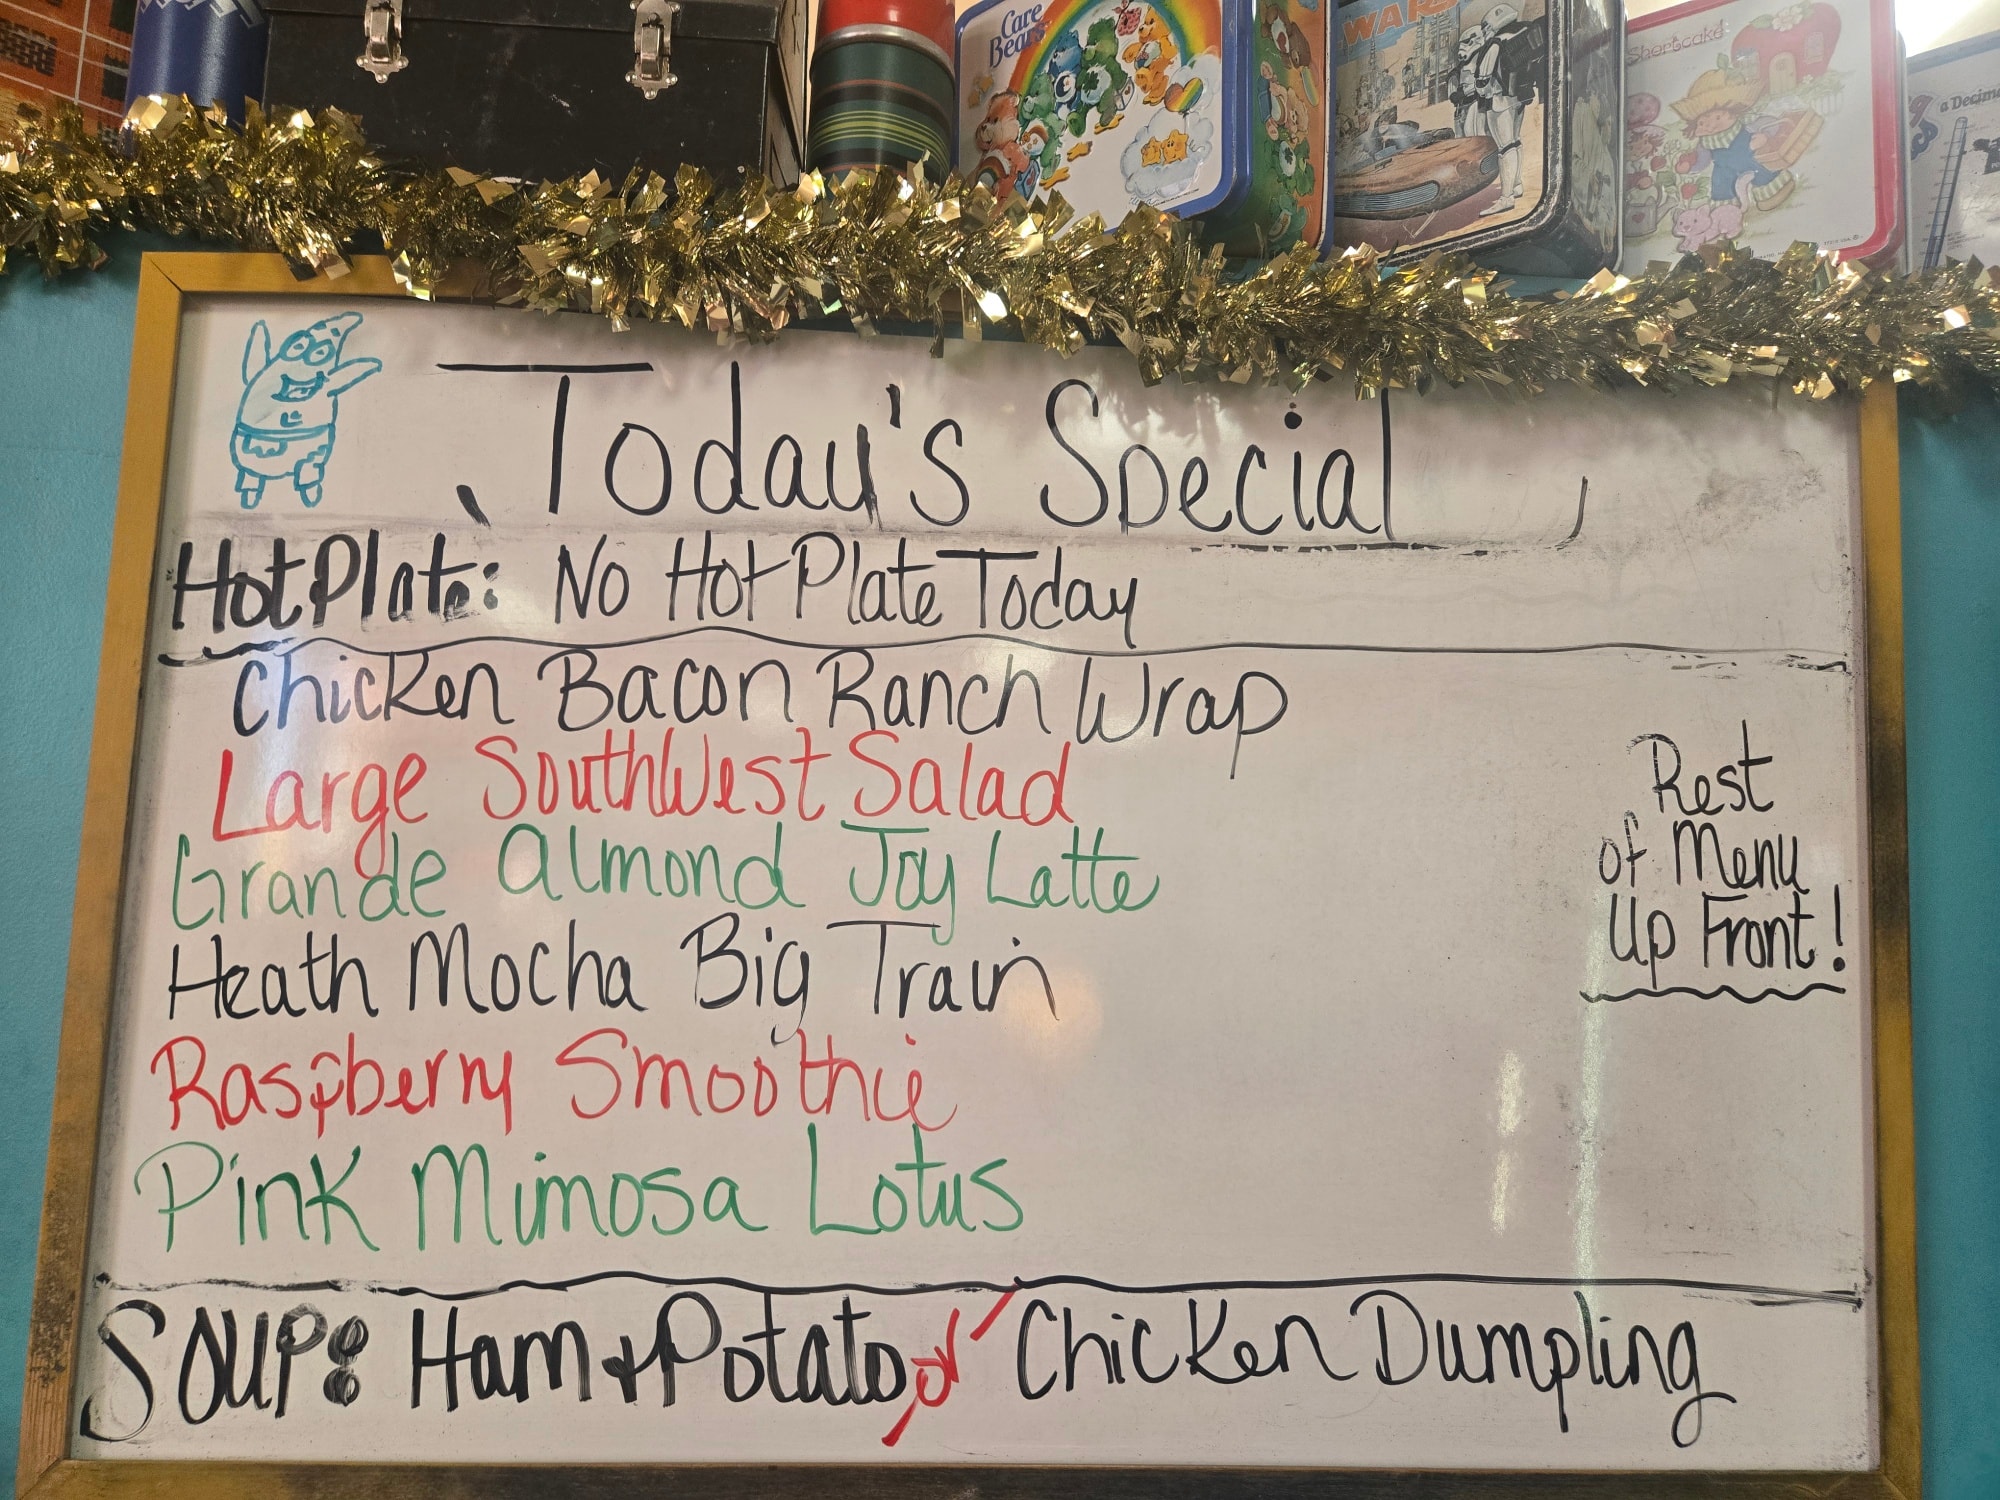 Care
Bears
WARS
Shortcake
a Decim
Today's Special
Hot Plate: No Hot Plate Today
Chicken Bacon Ranch Wrap
Large SouthWest Salad
Grande Almond Joy Latte
Heath Mocha Big Train
Raspberry Smoothie
Pink Mimosa Lotus
Rest
of Menu
Up Front!
Soup: Ham & Potato or Chicken Dumpling